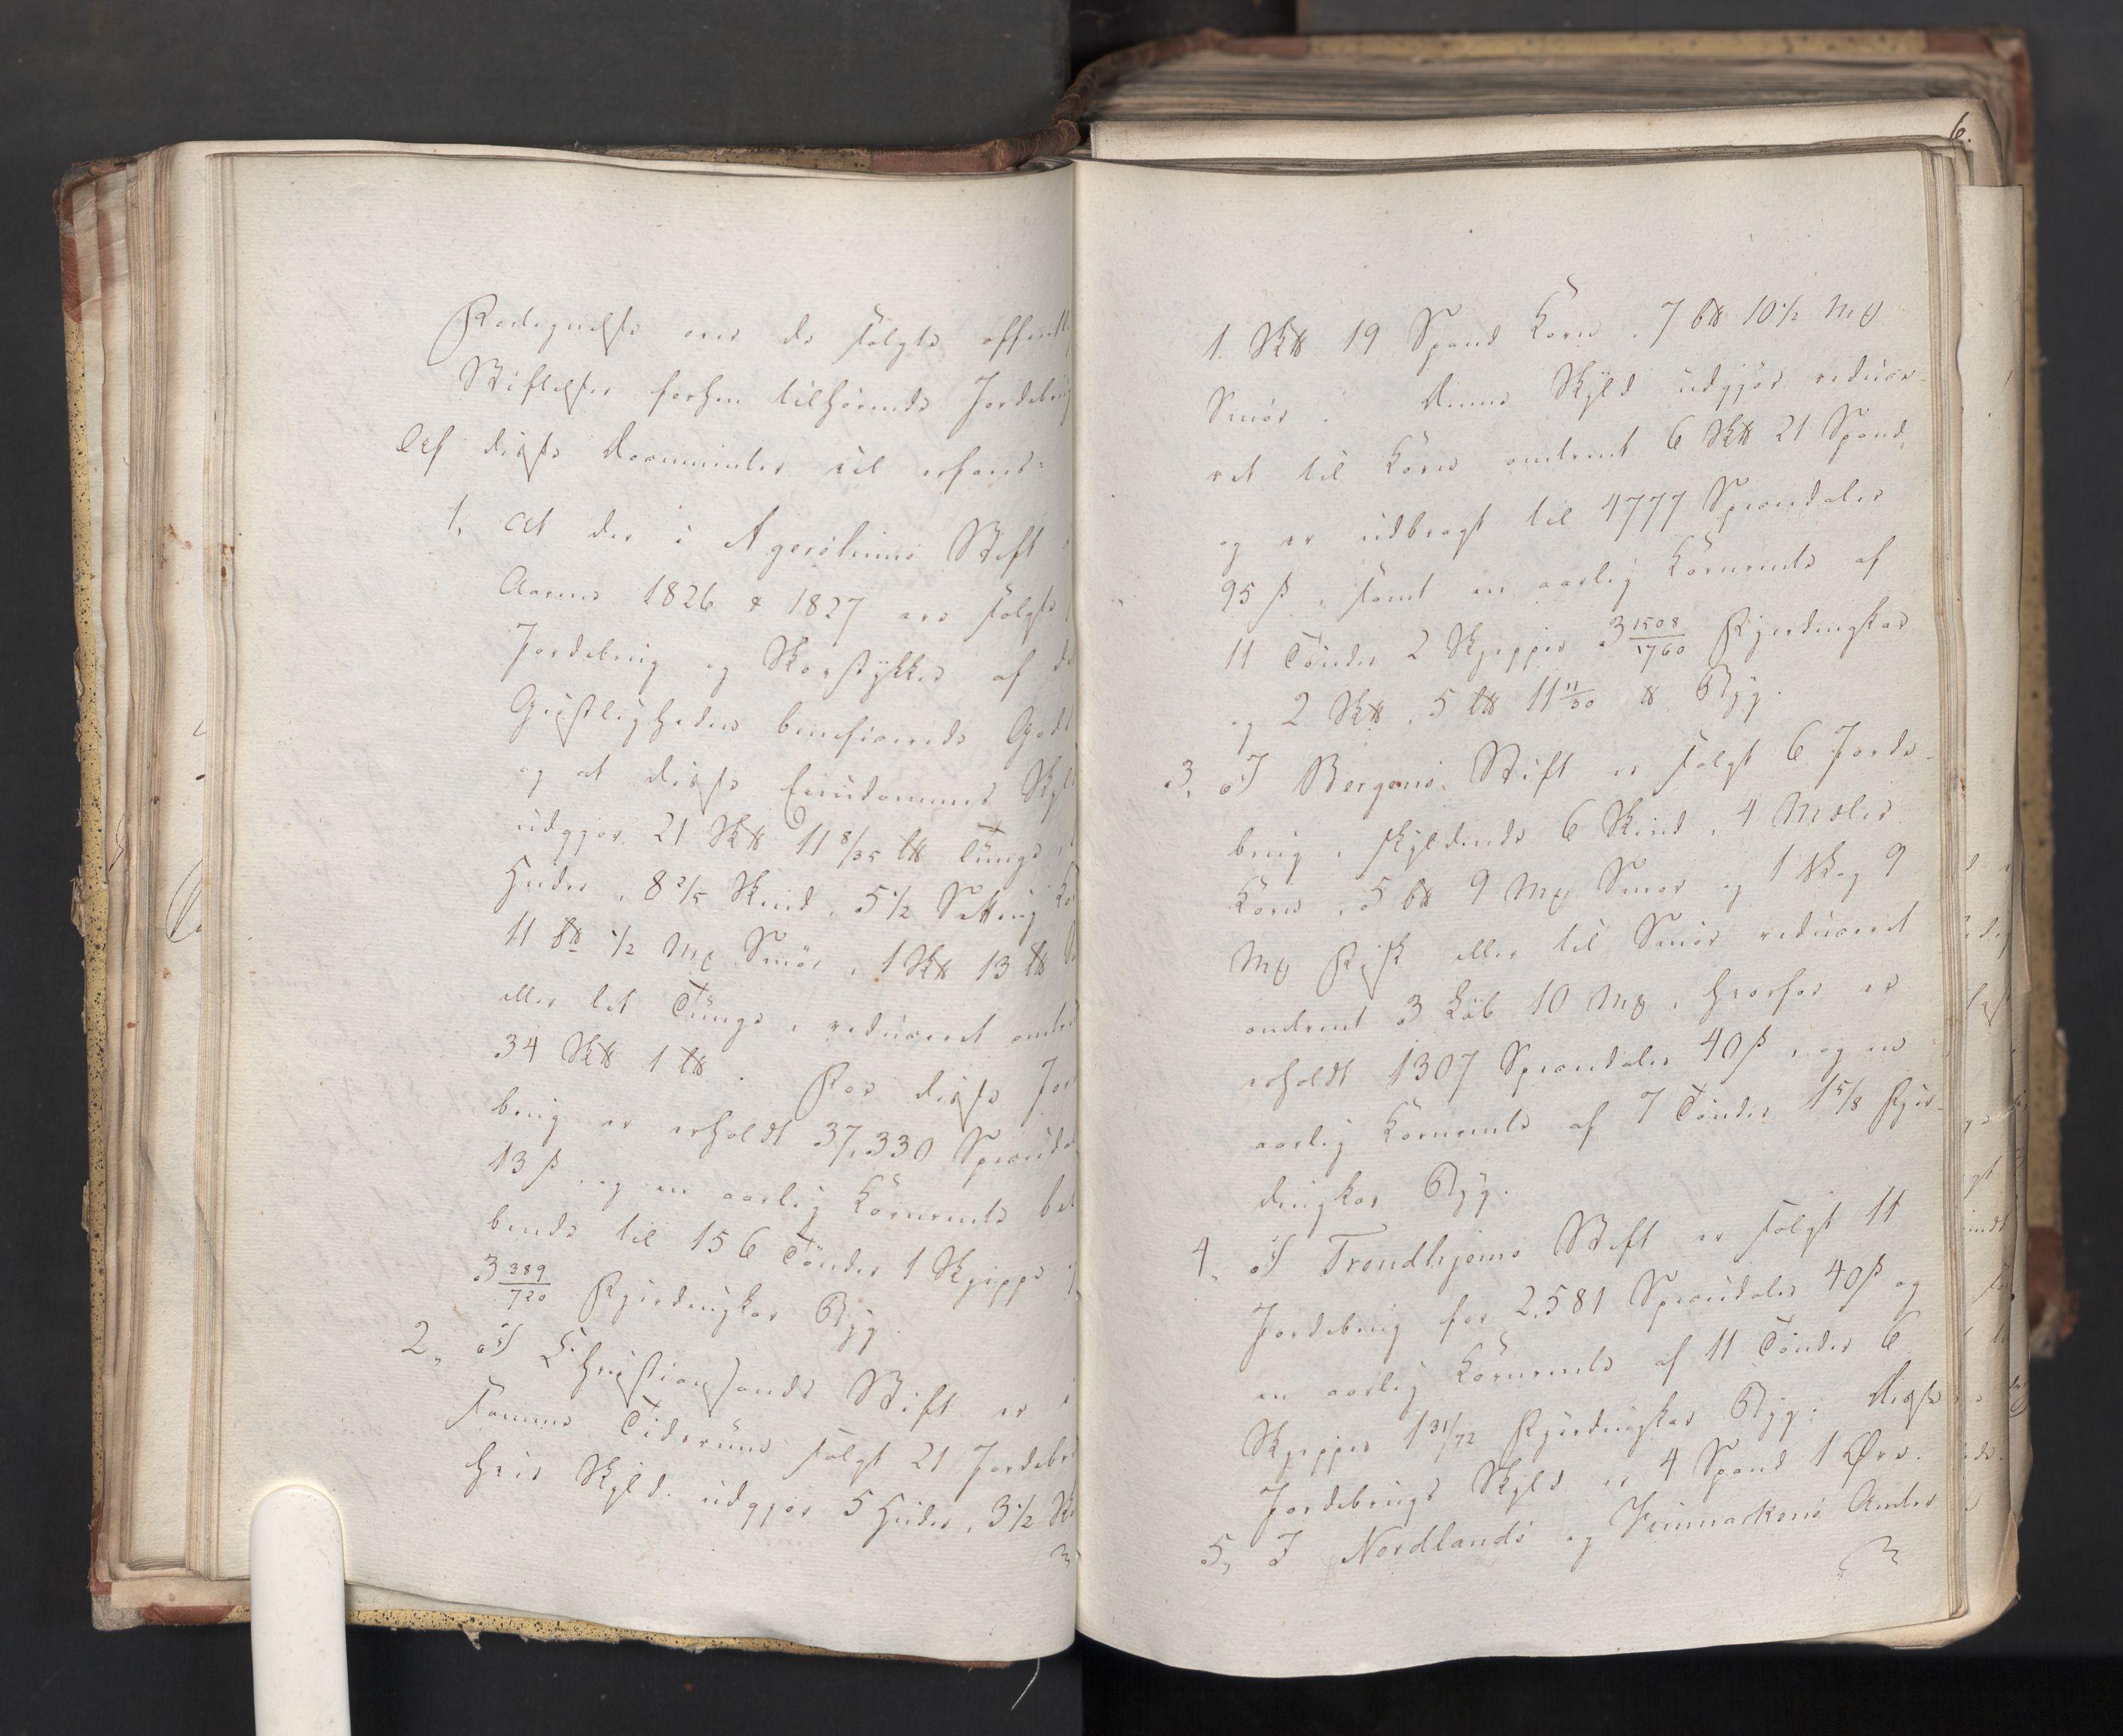 Fortegnelse over de solgte offentl
Stiftelser forhen tilhørende Jordebrug
Af disse Documenter vil erfares:
1, at der i Agershuus Stift
Aarene 1826 & 1827 ere solgte
Jordebrug og Skovstykker af de
Geistligheden beneficerede Gods
og at disse Eiendommes Skyld
udgjør 21 Sk℔ 11 8/35 L℔ Tunge
Huder, 8 2/5 Skind, 5 1/2 Setting Ko
11 L℔ 1/2 Mk Smør, 1 Sk℔ 13 L℔
eller let Tunge, reduceret omtre
34 Sk℔ 1 L℔. For disse Jor
brug er erholdt 37,330 Speciedal
13 ß og en aarlig Kornrente bel
bende til 156 Tønder 1 Skjeppe
3 389/720 Fjerdingkar Byg.
2, I Christiansands Stift er i
samme Tidsrum solgt 21 Jordebr
hvis Skyld udgjør 5 Huder, 3 1/2 Sk
6.
1. Sk℔ 19 Spand Korn, 7 b℔ 10 1/2 Mk
Smør. Denne Skyld udgjør reduce-
ret til Korn omtrent 6 Sk℔ 21 Spand,
og er udbragt til 4777 Speciedaler
95 ß, samt en aarlig Kornrente af
11 Tønder 2 Skjepper 3 1508/1760 Fjerdingkar
og 2 Sk℔, 5 L℔ 11 11/30 ℔ Byg.
3, I Bergens Stift er solgt 6 Jorde-
brug, skyldende 6 Skind, 4 Mæler
Korn, 5 b℔ 9 Mk Smør og 1 Vog 9
Mk Fisk eller til Smør reduceret
omtrent 3 Løb 10 Mk, hvorfor er
erholdt 1307 Speciedaler 40 ß, og en
aarlig Kornrente af 7 Tønder 1 5/8 Fjer-
dingkar Byg.
4, I Trondhjems Stift er solgt 11
Jordebrug for 2,581 Speciedaler 40 ß og
en aarlig Kornrente af 11 Tønder 6
Skjepper 1 31/72 Fjerdingkar Byg. Disse
Jordebrugs Skyld er 4 Spand 1 Øre.
5, I Nordlands og Finmarkens Amter